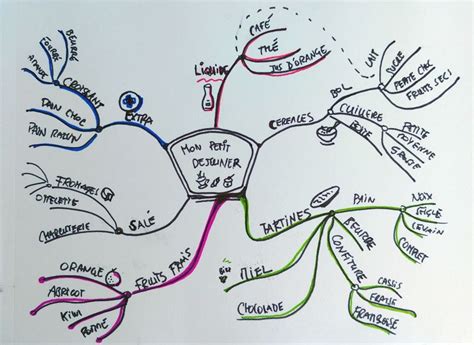 MON PETIT
DEJEUNER
LIQUIDE
CAFÉ
THÉ
JUS D'ORANGE
CEREALES
BOL
LAIT
SUCRE
PEPITE CHOC
FRUITS SECS
CUILLERE
PETITE
MOYENNE
GRANDE
TARTINES
PAIN
NOIX
SEIGLE
LEVAIN
COMPLET
BEURRE
CONFITURE
CASSIS
FRAISE
FRAMBOISE
MIEL
CHOCOLADE
FRUITS FRAIS
ORANGE
ABRICOT
KIWI
POMME
SALÉ
FROMAGES
OMELETTE
CHARCUTERIE
EXTRA
CROISSANT
BEURRE
FOURRÉ
PAIN CHOC
PAIN RAISIN